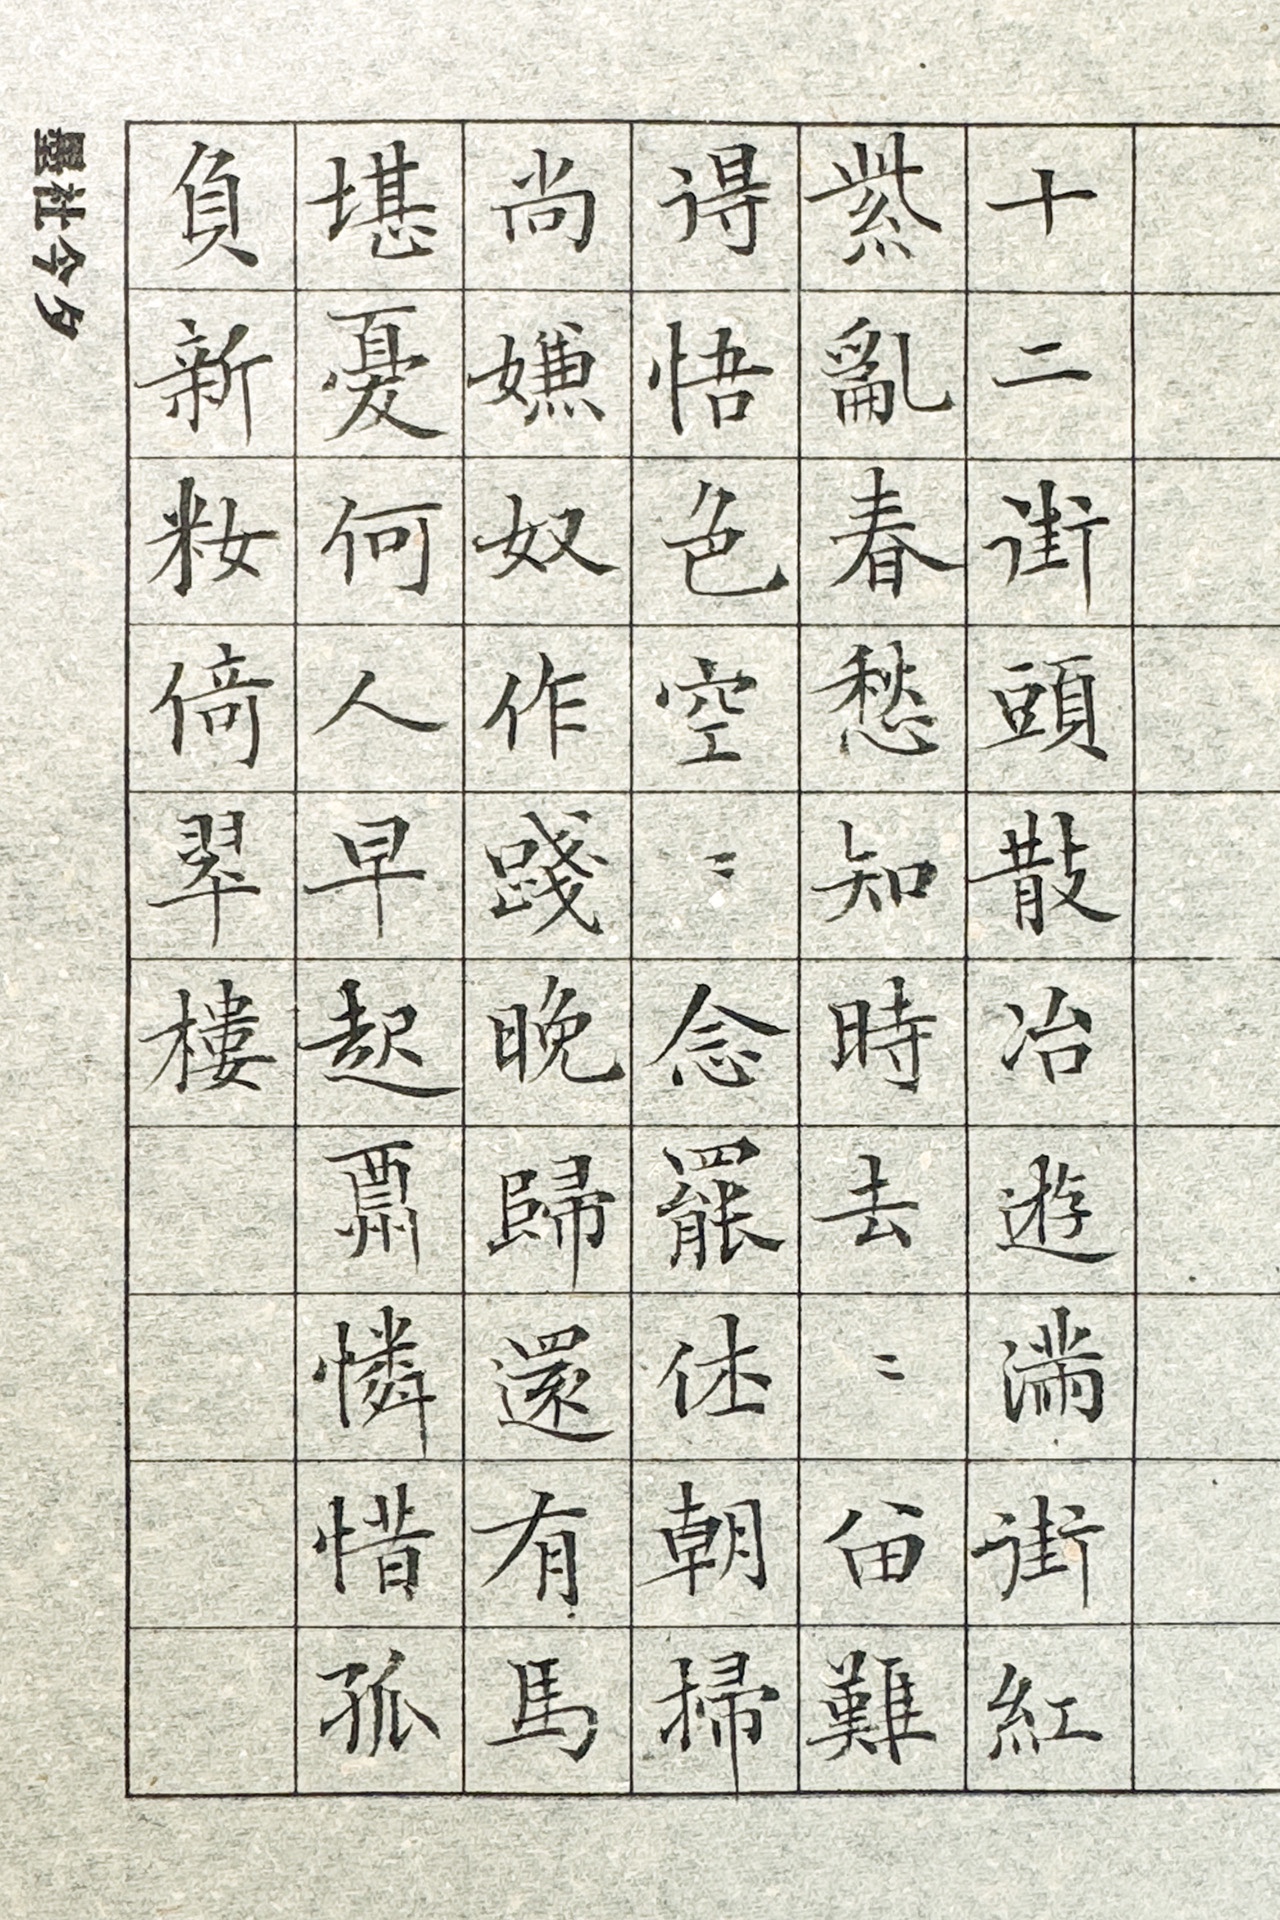 十二街頭散冶遊滿街紅
紫亂春愁知時去〻留難
得悟色空〻念罷休朝掃
尚嫌奴作踐晚歸還有馬
堪憂何人早起酬憐惜孤
負新籹倚翠樓
墨社今夕